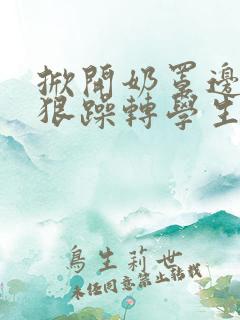 掀開奶罩邊
狠躁轉學生
鳥生莉世
未经同意禁止转载